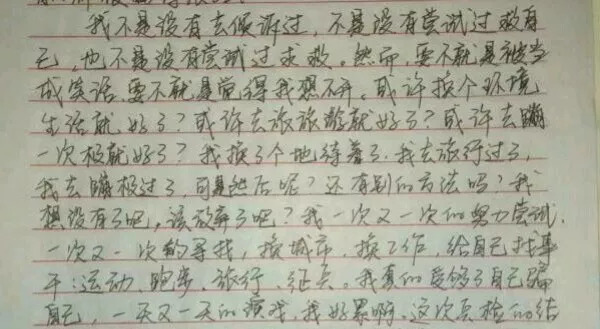 我不是没有去倾诉过，不是没有尝试过救自
己，也不是没有尝试过求救。然而，要不就是被当
成笑话，要不就是觉得我想不开。或许换个环境
生活就好了？或许去旅旅游就好了？或许去蹦
一次极就好了？我换了个地待着了，我去旅行过了，
我去蹦极过了，可是然后呢？还有别的方法吗？我
想没有了吧，该放弃了吧？我一次又一次的努力尝试，
一次又一次的寻找，换城市，换工作，给自己找事
干：运动、跑步、旅行、。我真的受够了自己骗
自己，一天又一天的演戏，我好累啊。这次的结